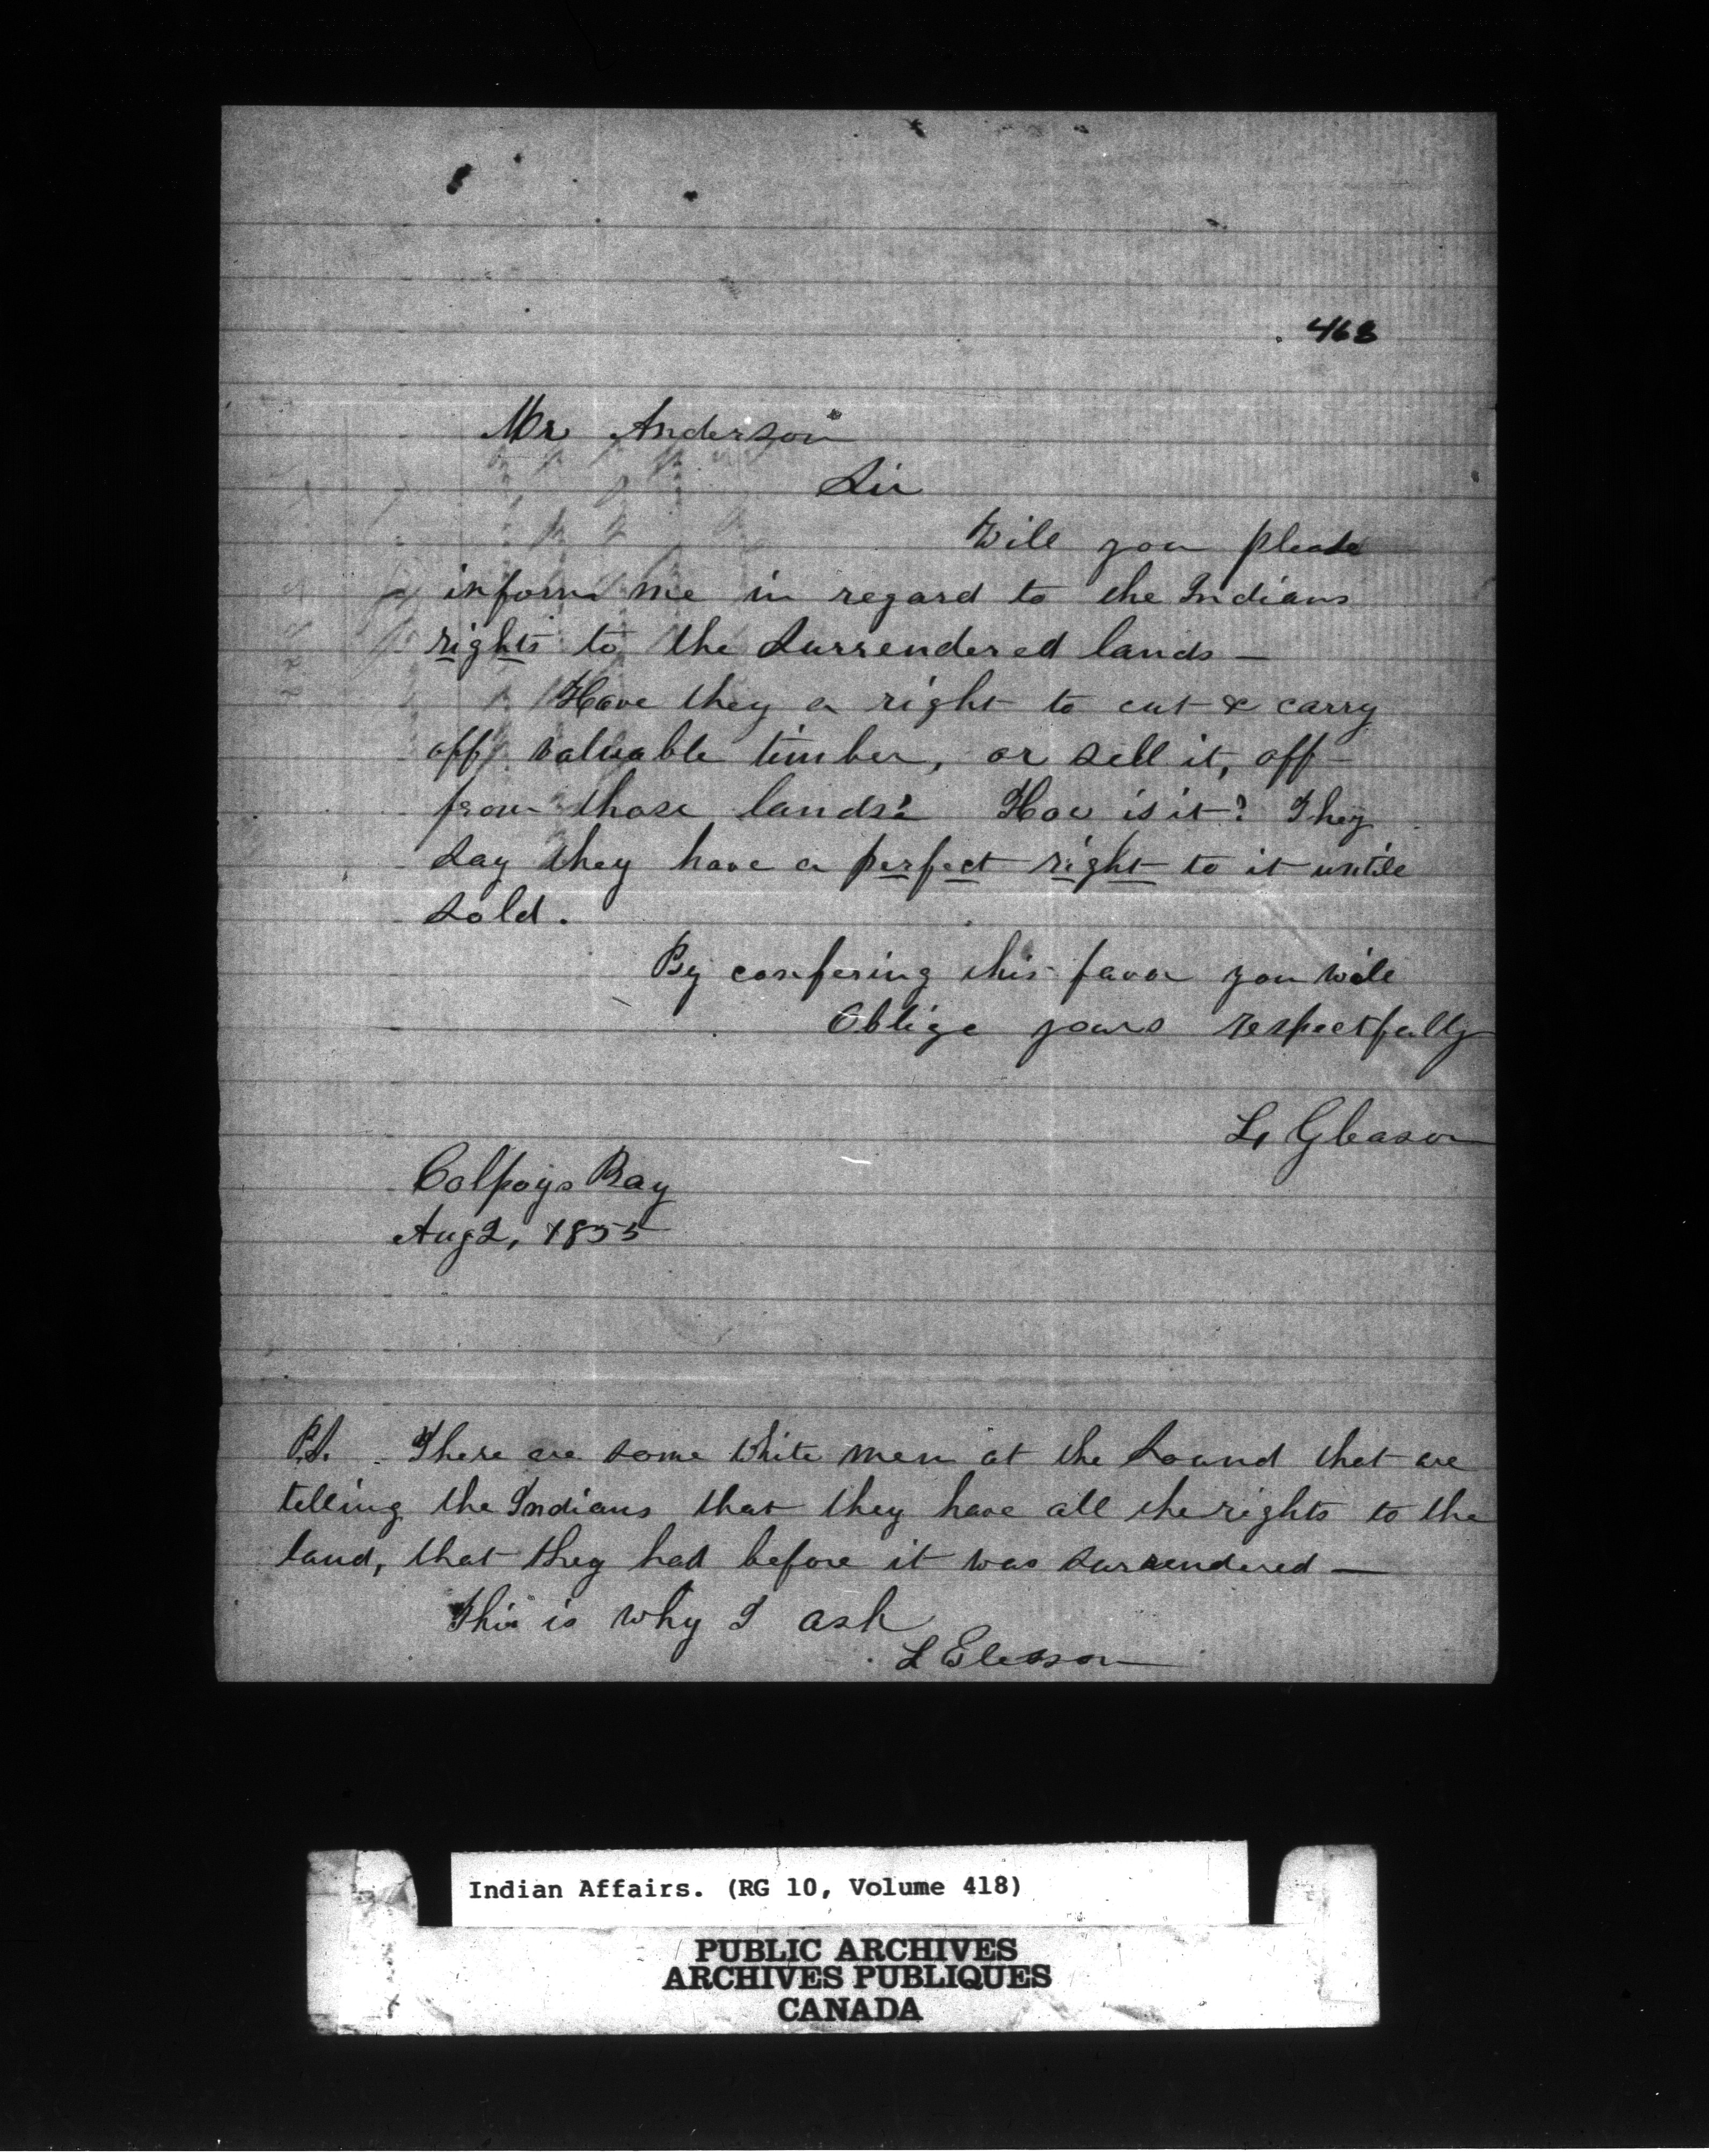 468
Mr Anderson
Sir
Will you please
inform me in regard to the Indians
rights to the surrendered lands —
Have they a right to cut & carry
off valuable timber, or sell it, off
from those lands? How is it? They
say they have a perfect right to it untill
sold.
By confering this favor you will
Oblige yours respectfully
L, Gleason
Colpoys Bay
Aug 2, 1855
P.S. There are some white men at the Sound that are
telling the Indians that they have all the rights to the
land, that they had before it was surrendered —
This is why I ask
L Gleason
Indian Affairs. (RG 10, Volume 418)
PUBLIC ARCHIVES
ARCHIVES PUBLIQUES
CANADA